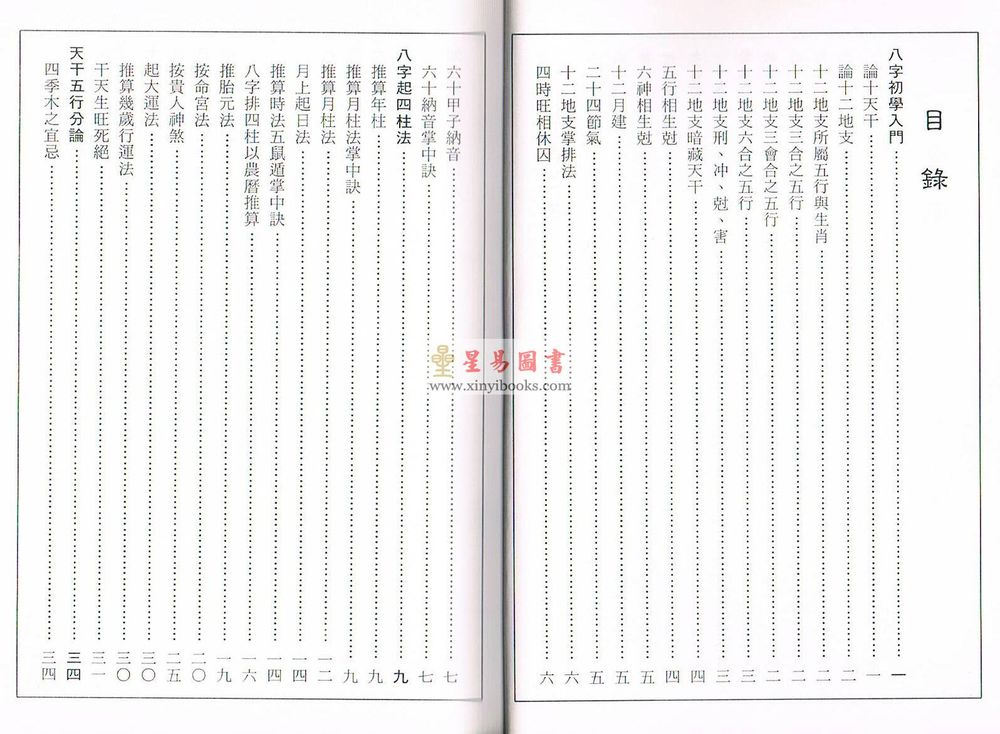 目錄
八字初學入門……一
論十天干……一
論十二地支……二
十二地支所屬五行與生肖……二
十二地支三合之五行……二
十二地支三會合之五行……二
十二地支六合之五行……三
十二地支刑、冲、尅、害……三
十二地支暗藏天干……四
五行相生尅……四
六神相生尅……五
十二月建……五
二十四節氣……五
十二地支掌排法……六
四時旺相休囚……六
六十甲子納音……七
六十納音掌中訣……七
八字起四柱法……九
推算年柱……九
推算月柱法掌中訣……九
推算月柱法……一二
月上起日法……一四
推算時法五鼠遁掌中訣……一四
八字排四柱以農曆推算……一六
推胎元法……一九
按命宮法……二〇
按貴人神煞……二五
起大運法……三〇
推算幾歲行運法……三〇
干天生旺死絕……三一
天干五行分論……三四
四季木之宜忌……三四
星易圖書
www.xinyibooks.com